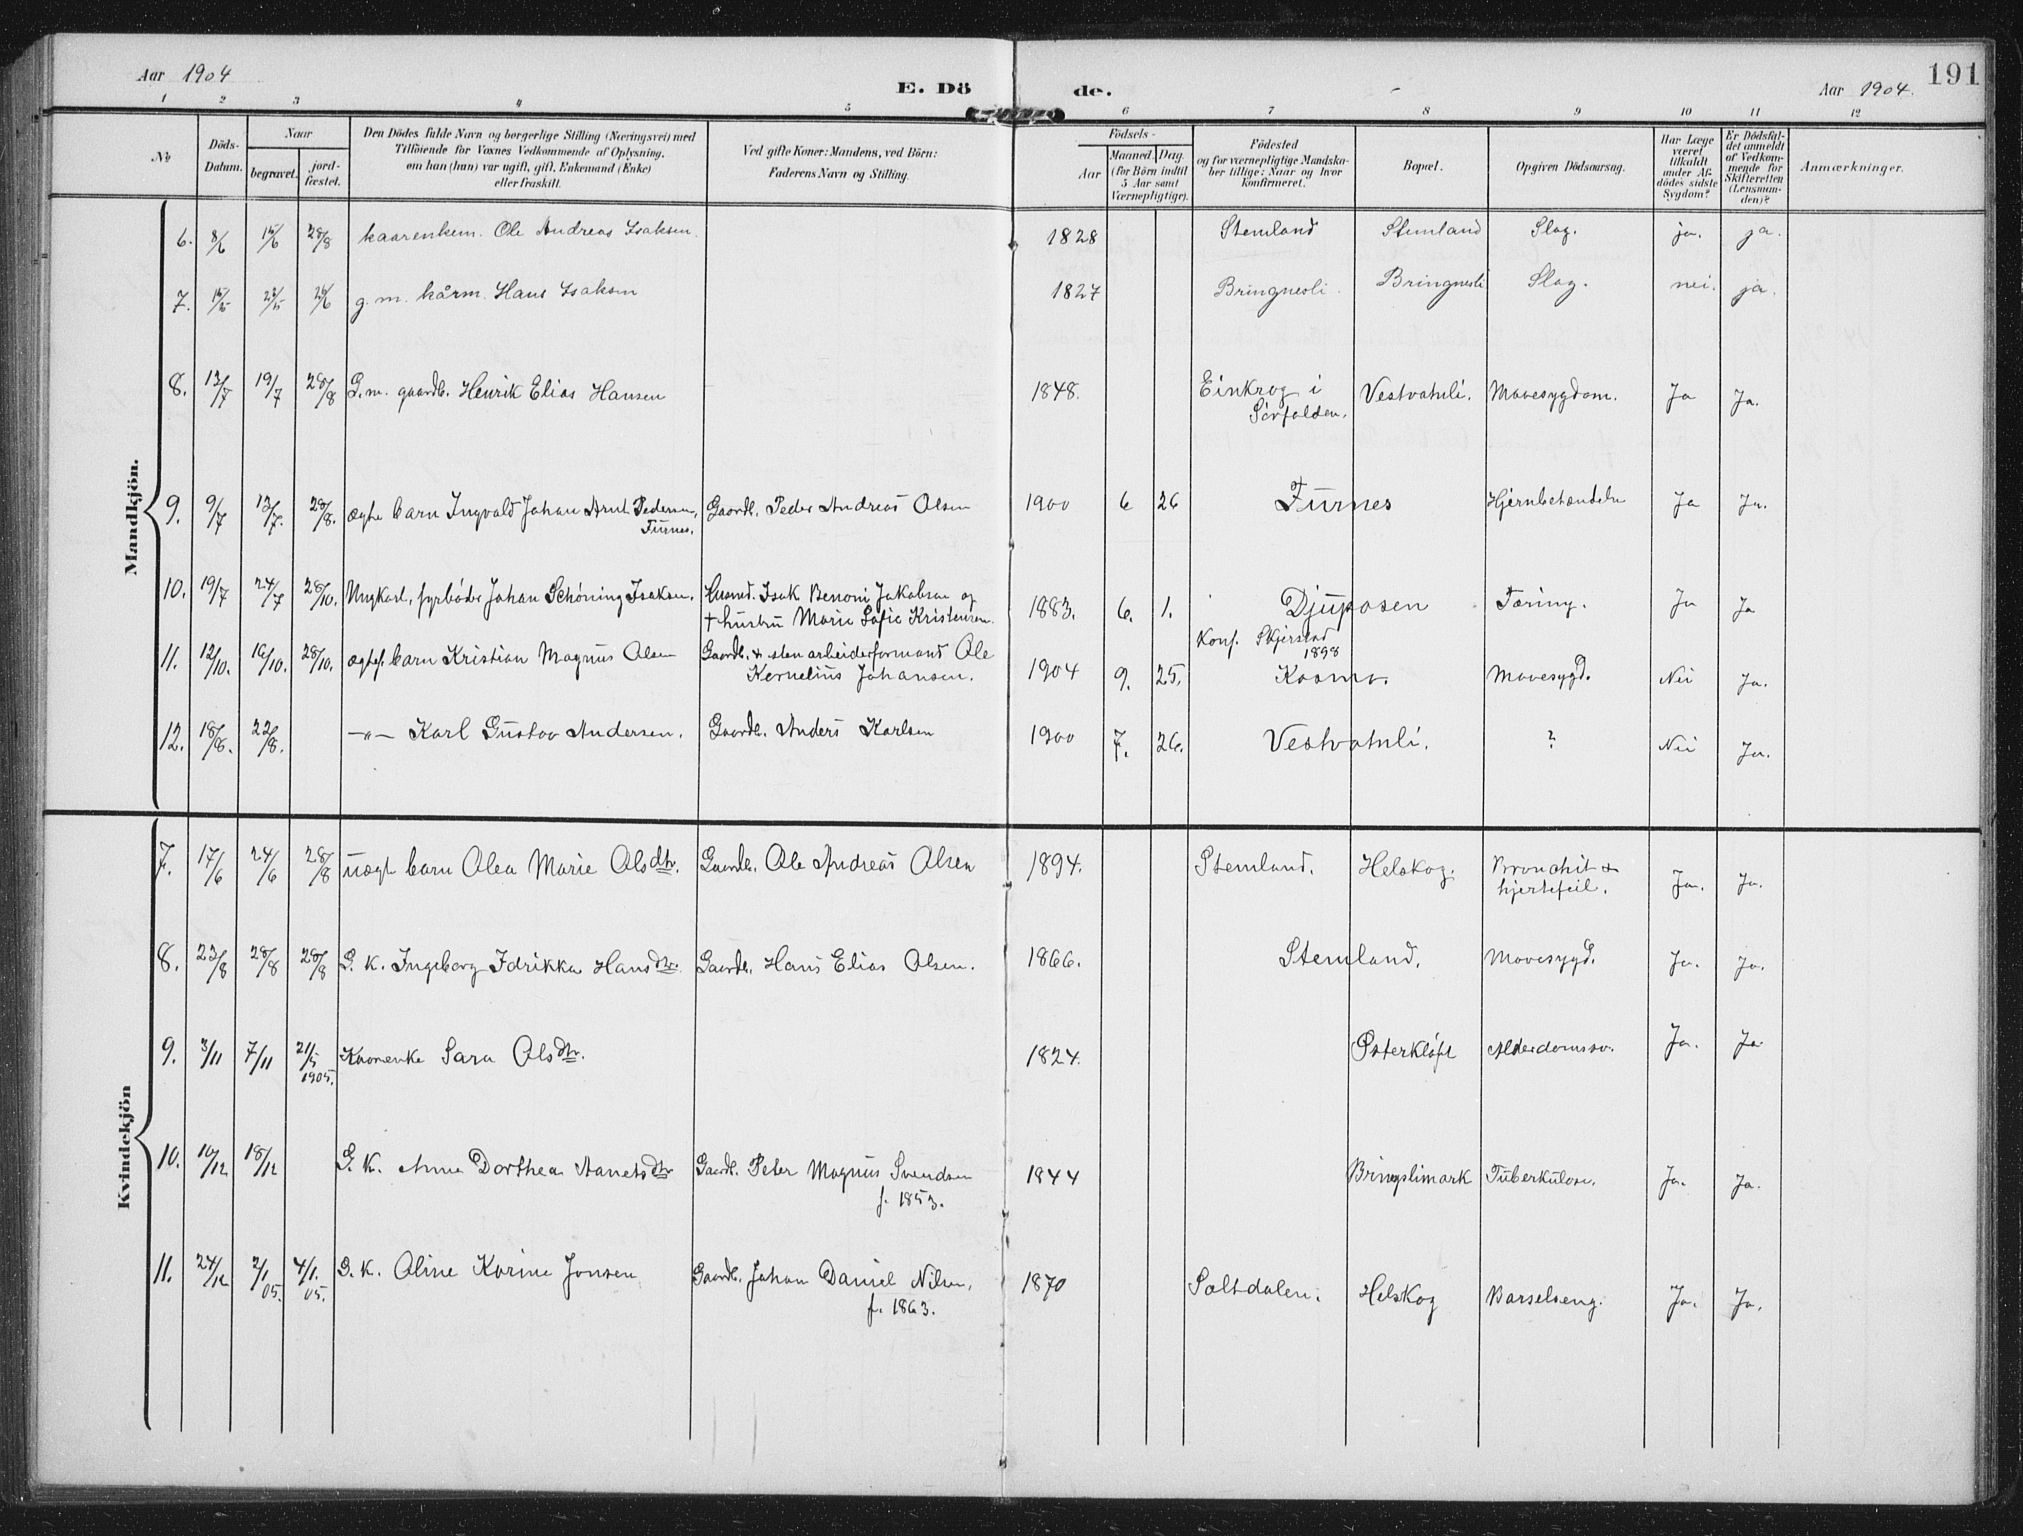 Aar 1904
E. Dö
de.
Aar 1904.
191
1 2 3 4 5 6 7 8 9 10 11 12
No
Döds-
Datum.
Naar
begravet.
jord-
fæstet.
Den Dödes fulde Navn og borgerlige Stilling (Næringsvei) med
Tilföiende for Voxnes Vedkommende af Oplysning,
om han (hun) var ugift, gift, Enkemand (Enke)
eller fraskilt.
Ved gifte Koner: Mandens, ved Börn:
Faderens Navn og Stilling.
Födsels-
Aar
Maaned. Dag.
(for Börn indtil
5 Aar samt
Værnepligtige).
Födested
og for værnepligtige Mandska-
ber tillige: Naar og hvor
Konfirmeret.
Bopæl.
Opgiven Dödsaarsag.
Har Læge
været
tilkaldt
under Af-
dödes sidste
Sygdom?
Er Dödsfal-
det anmeldt
af Vedkom-
mende for
Skifteretten
(Lensman-
den)?
Anmærkninger.
Mandkjön.
6. 8/6 15/6 28/8 kaarenkem. Ole Andreas Isaksen. 1828 Stemland Stemland Slag. ja. ja.
7. g. m. kårm. Hans Isaksen 1827 Bringnesli. Bringnesli Slag. nei. ja.
8. 13/7 19/7 28/8 G.m. gaardb. Henrik Elias Hansen 1848. Einkrog i Vestvatnli. Mavesygdom. Ja Ja.
Sørfolden.
9. 9/7 13/7. 28/8. ægte barn Ingvald Johan Arnt Pedersen, Gaardb. Peder Andreas Olsen 1900 6 26 Furnes Hjernbetændelse Ja Ja.
Furnes.
10. 19/7 24/7 28/10. Ungkarl, fyrbøder Johan Schöning Isaksen. Husmd. Isak Benoni Jakobsen og 1883. 6. 1. Djuposen Tæring. Ja Ja
† hustru Marie Sofie Kristensen. Konf. Skjerstad
1898
11. 12/10. 16/10. 28/10. ægtef. barn Kristian Magnus Olsen Gaardb. & stenarbeiderformand Ole 1904 9. 25. Kosmo. Mavesygd. Nei Ja.
Kornelius Johansen.
12. 18/8. 22/8. —„— Karl Gustav Andersen. Gaardb. Anders Karlsen 1900 7. 26. Vestvatnli. ? Nei Ja.
Kvindekjön
7. 17/6 24/6 28/8 uægt barn Olea Marie Olsdtr. Gaardb. Ole Andreas Olsen 1894. Stemland. Helskog. Bronchit &
hjertefeil. Ja. Ja.
8. 23/8 28/8 28/8 G. k. Ingeborg Fdrikka Hansdtr. Gaardb. Hans Elias Olsen. 1866. Stemland. Mavesygd. Ja. Ja.
9. 3/11 7/11 21/5 Kaarenke Sara Olsdtr. 1824. Østerkløft Alderdomssv. Ja. Ja
1905.
10. 10/12 18/12 G. K. Anna Dorthea Aanetsdtr Gaardb. Peter Magnus Svendsen 1844 Bringslimark Tuberkulose. Ja. Ja.
f. 1853.
11. 24/12 2/1 05. 4/1. 05. G. K. Oline Karine Jonsen Gaardb. Johan Daniel Nilsen, 1870 Saltdalen. Helskog Barselseng. Ja. Ja.
f. 1863.